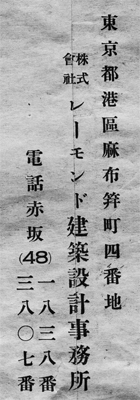 東京都港區麻布笄町四番地
株式會社レーモンド建築設計事務所
電話赤坂(48)一八三八番
三八〇七番